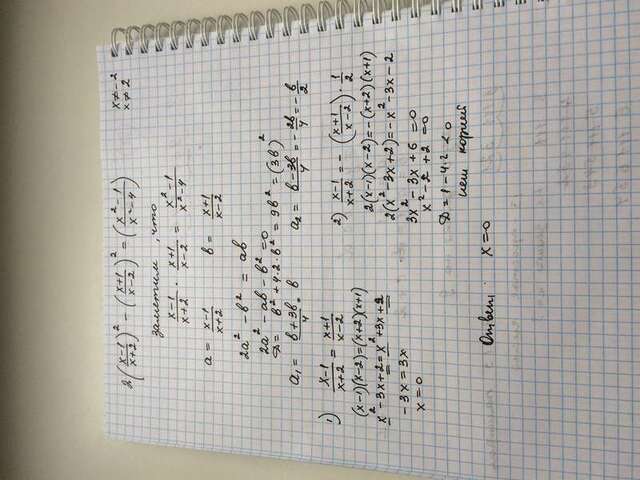 2((x-1)/(x+2))² - ((x+1)/(x-2))² = ((x²-1)/(x²-4))
x≠-2
x≠2
заметим, что
(x-1)/(x+2) · (x+1)/(x-2) = (x²-1)/(x²-4)
a = (x-1)/(x+2) b = (x+1)/(x-2)
2a² - b² = ab
2a² - ab - b² = 0
D = b² + 4·2·b² = 9b² = (3b)²
a₁ = (b+3b)/4 = b a₂ = (b-3b)/4 = -2b/4 = -b/2
1) (x-1)/(x+2) = (x+1)/(x-2)
(x-1)(x-2) = (x+2)(x+1)
x² - 3x + 2 = x² + 3x + 2
-3x = 3x
x = 0
2) (x-1)/(x+2) = -((x+1)/(x-2)) · 1/2
2(x-1)(x-2) = -(x+2)(x+1)
2(x² - 3x + 2) = -x² - 3x - 2
3x² - 3x + 6 = 0
x² - 2 + 2 = 0
D = 1 - 4·2 < 0
нет корней
Ответ: x = 0